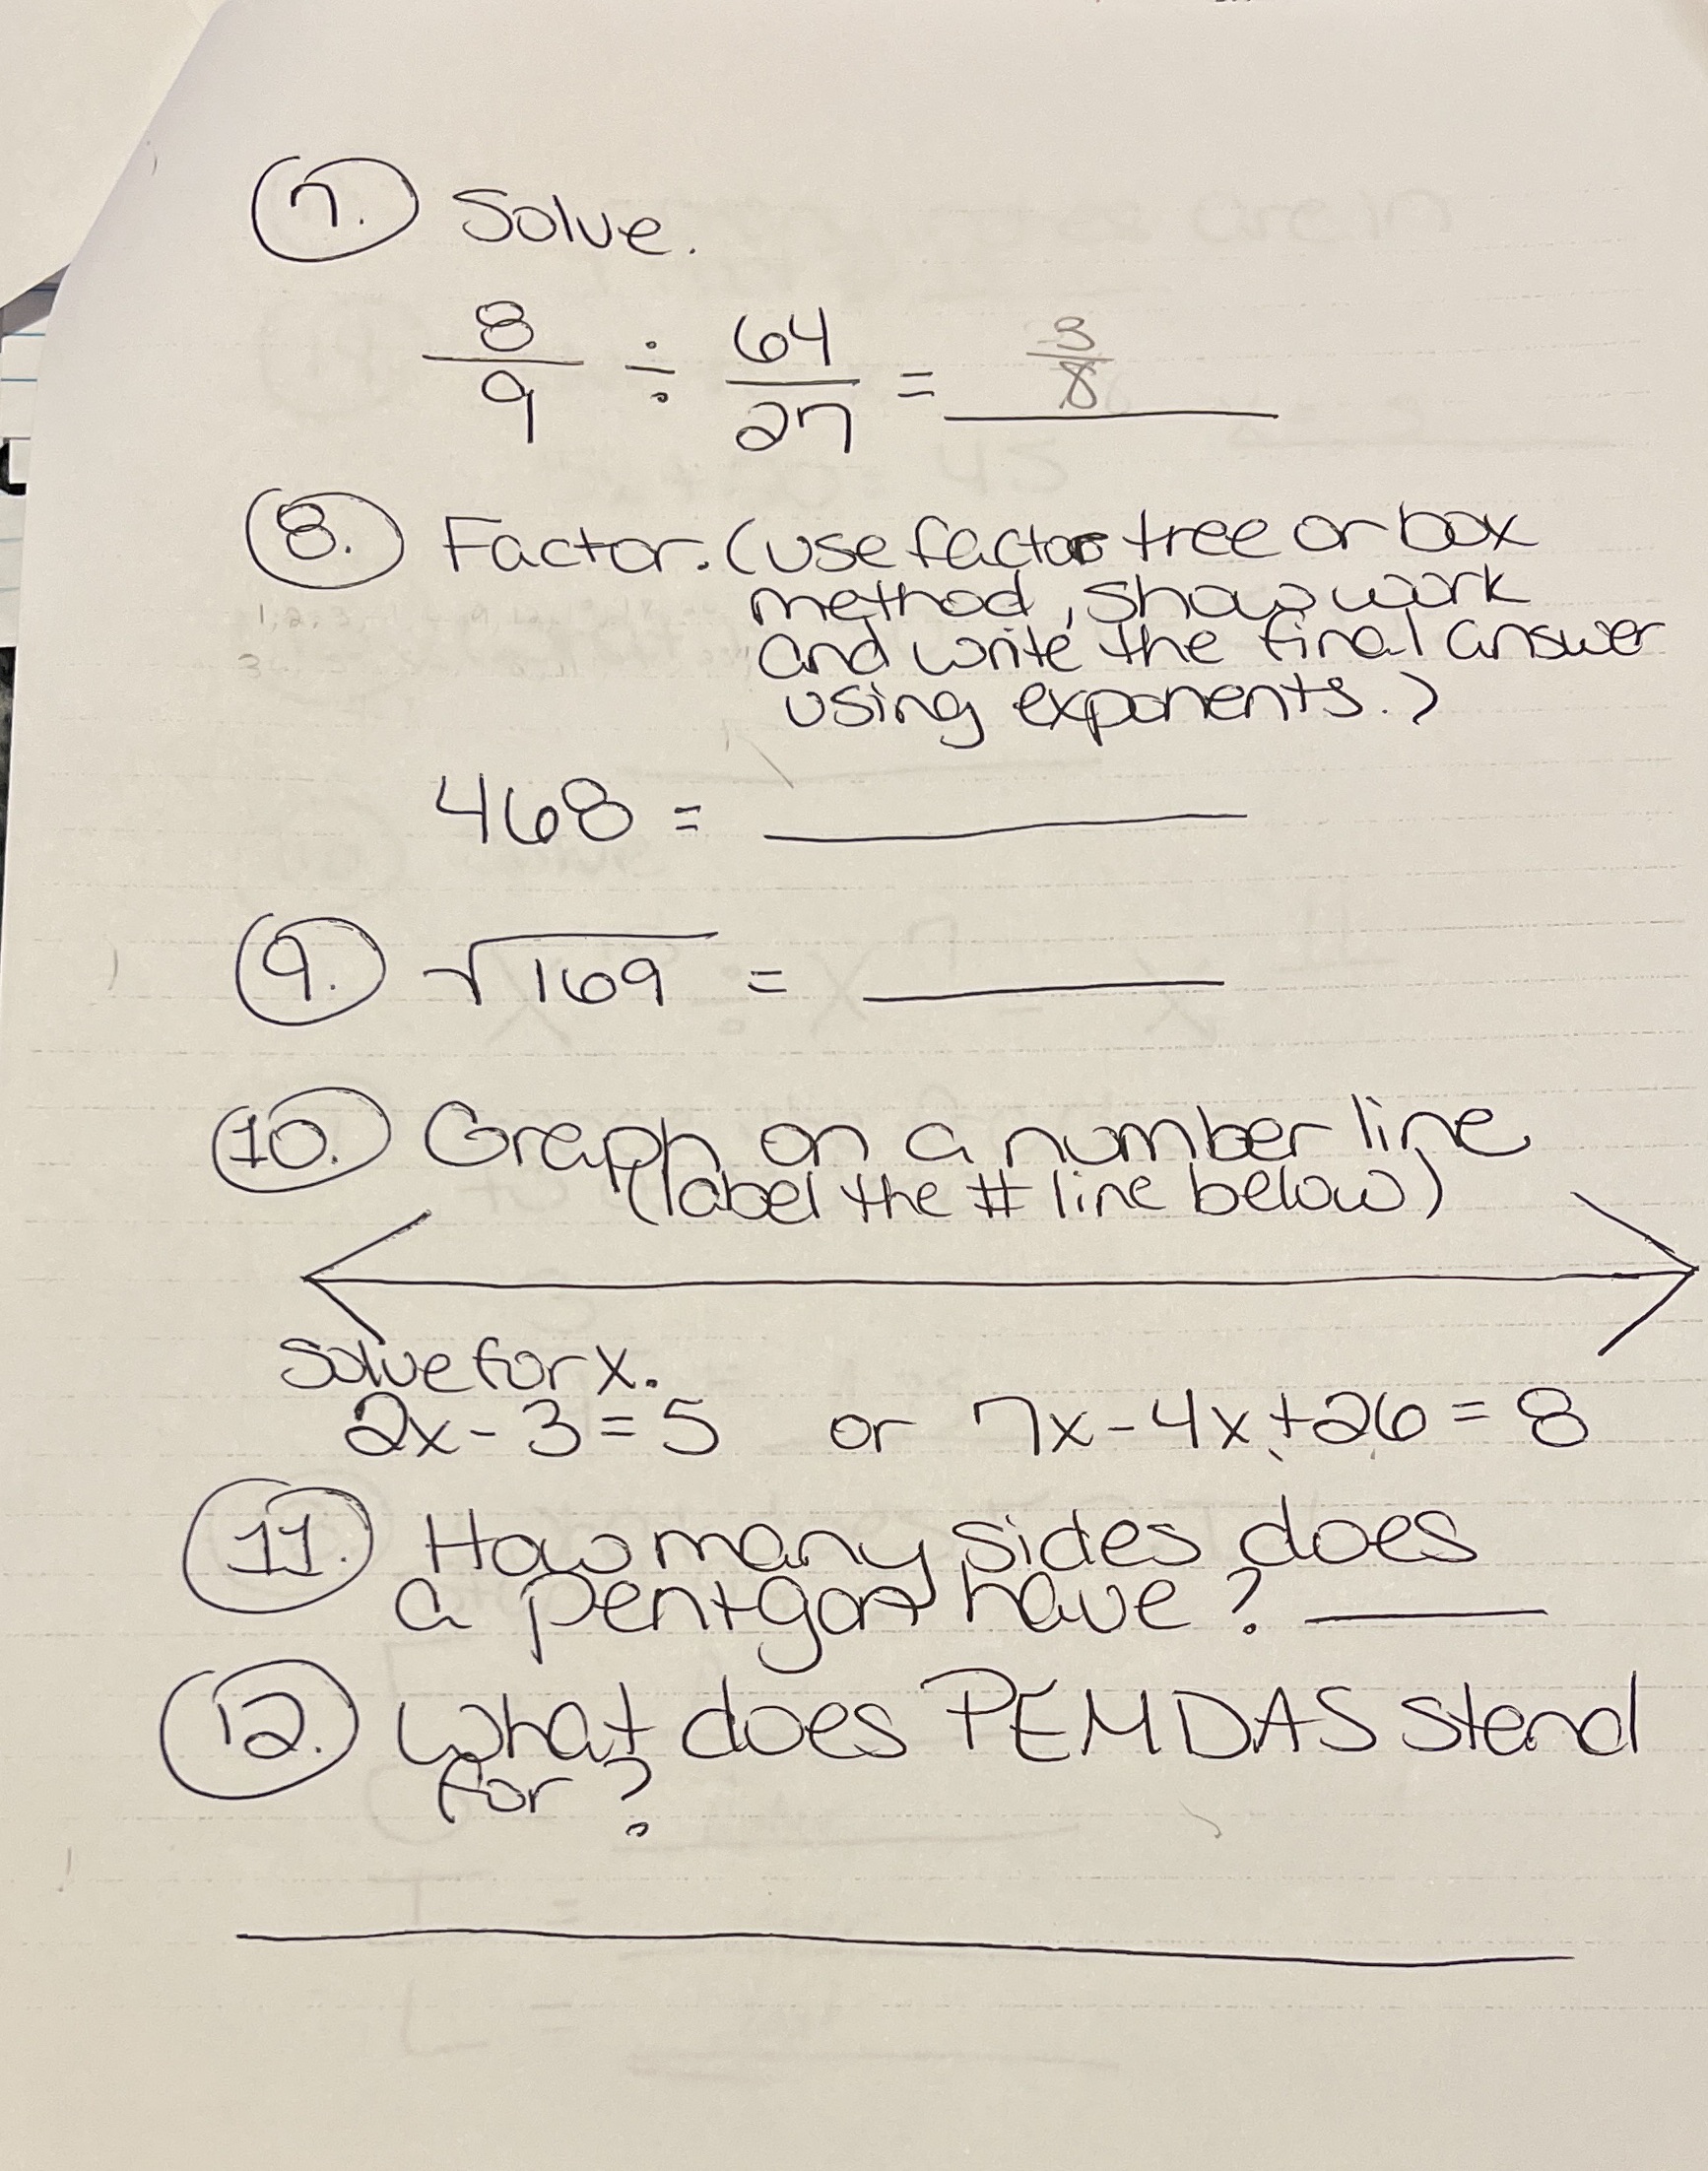 7. Solve.
8/9 ÷ 64/27 = 3/8
8. Factor. (use factor tree or box
method, show work
and write the final answer
using exponents.)
468 =
9. √169 =
10. Graph on a number line
(label the # line below)
Solve for x.
2x - 3 = 5 or 7x - 4x + 26 = 8
11. How many sides does
a pentgon have?
12. What does PEMDAS stand
for?